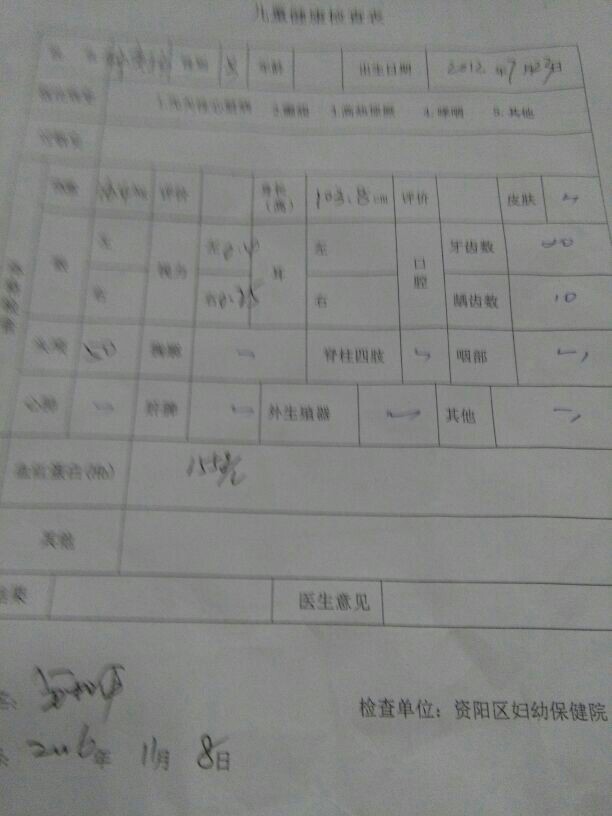 儿童健康检查表
姓 名 性别 女 年龄 出生日期 2012 年7月23日
既往病史 1.先天性心脏病 2.癫痫 3.高热惊厥 4.哮喘 5.其他
过敏史
体重 评价 身长(高) 103.8cm 评价 皮肤
眼 左 视力 左 耳 左 口腔 牙齿数 20
右 右 右 龋齿数 10
头颅 胸廓 脊柱四肢 咽部
心肺 肝脾 外生殖器 其他
血红蛋白(Hb) 155g/L
其他
医生意见
检查单位：资阳区妇幼保健院
2016年 11月 8日